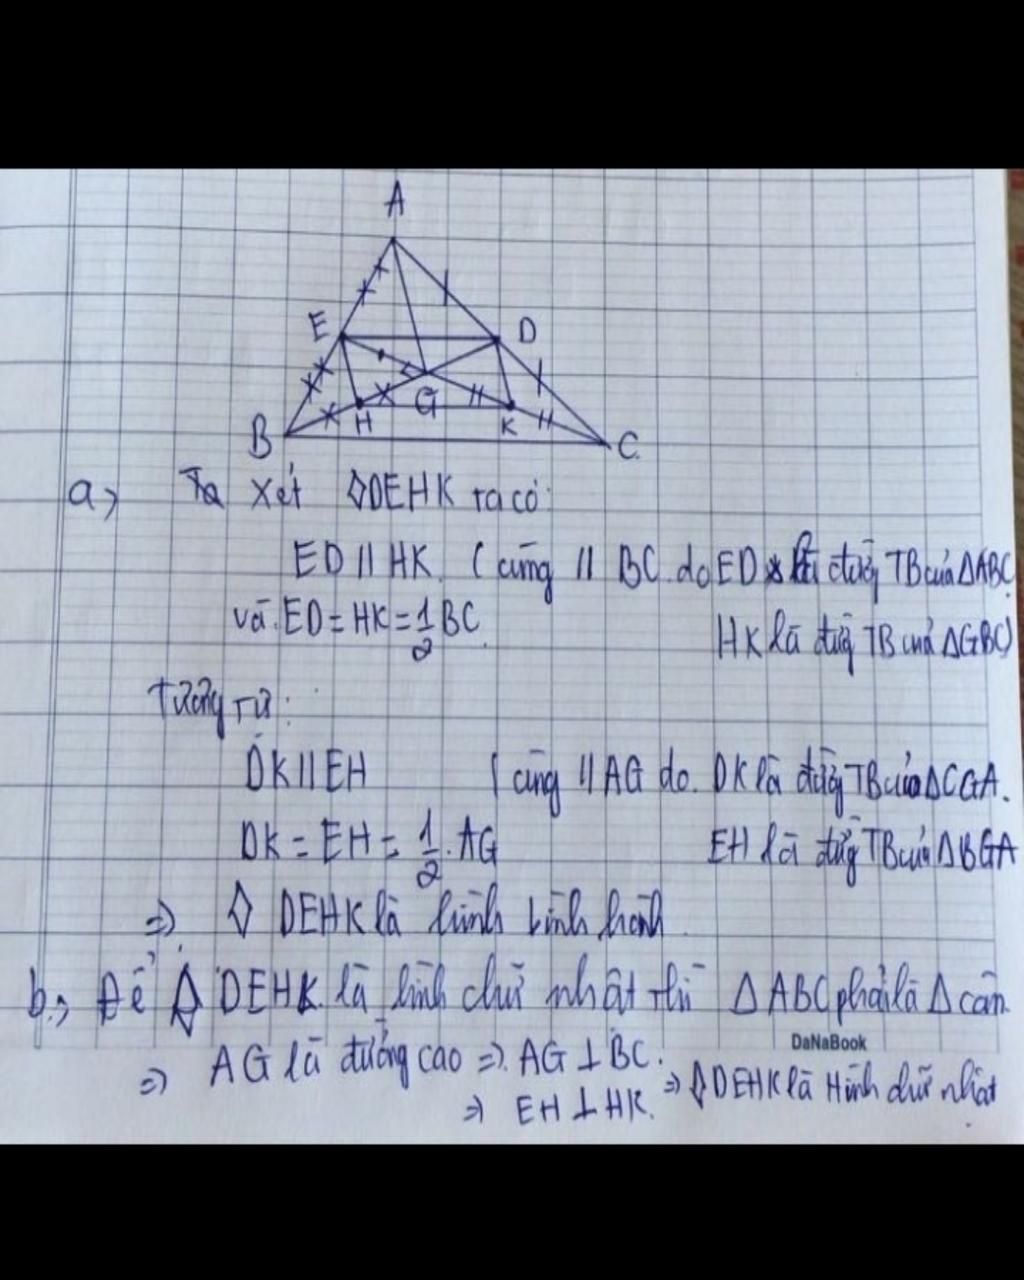 A
E
D
G
B
H
K
C
a, Ta xét ◊DEHK ta có:
ED // HK. ( cùng // BC. do ED là đường TB của ΔABC
và ED = HK = 1/2 BC.
HK là đường TB của ΔGBC)
Tương tự:
DK // EH ( cùng // AG do. DK là đường TB của ΔCGA.
DK = EH = 1/2 . AG
EH là đường TB của ΔBGA
=> ◊ DEHK là hình bình hành.
b, Để ◊ DEHK là hình chữ nhật thì ΔABC phải là Δ cân.
DaNaBook
=> AG là đường cao => AG ⊥ BC.
=> EH ⊥ HK. => ◊DEHK là Hình chữ nhật